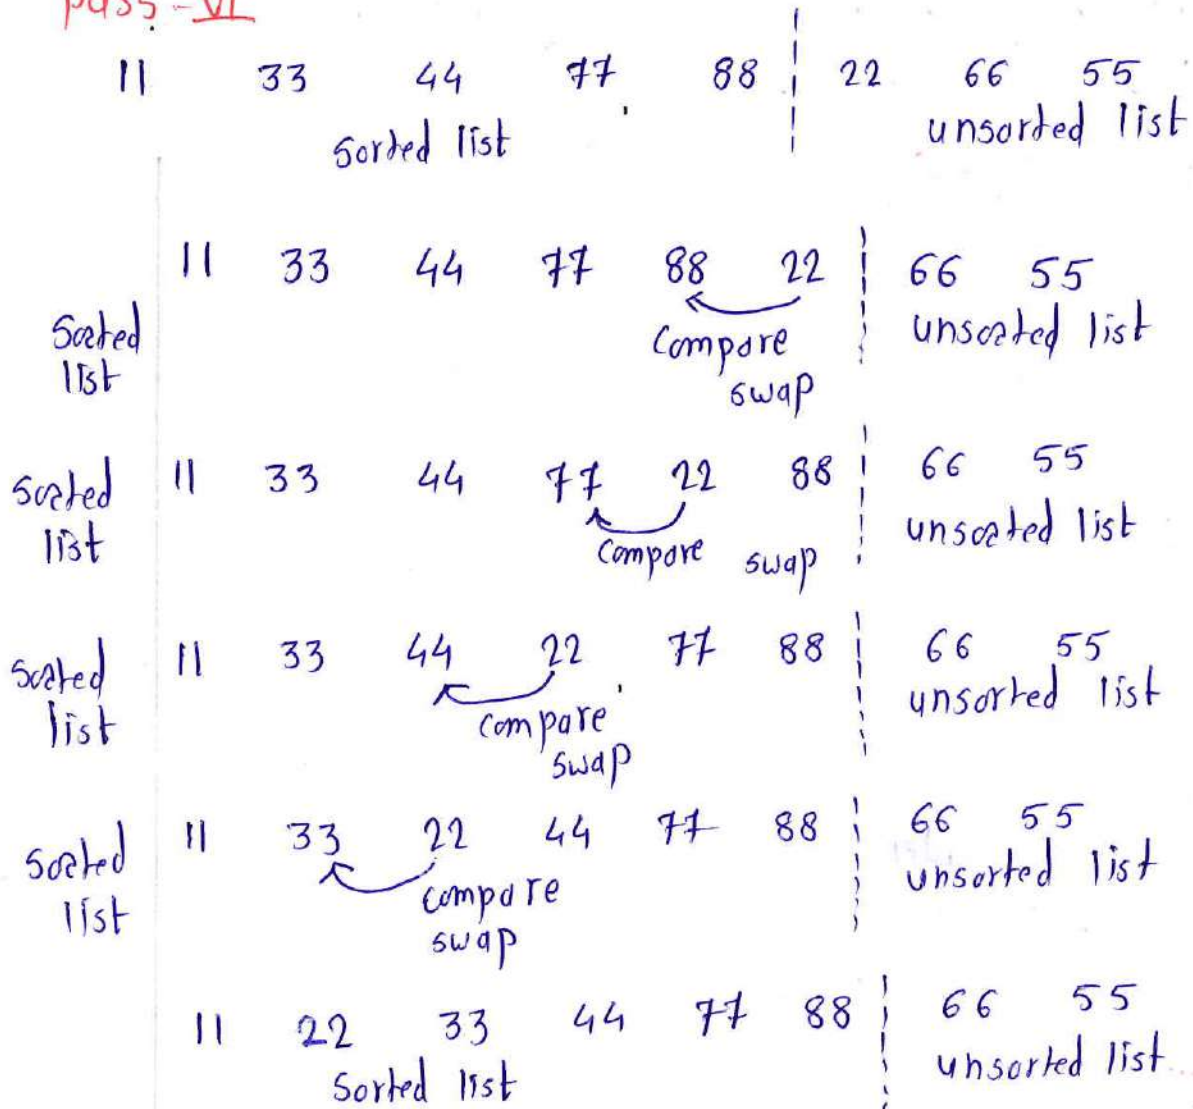 pass - VI
11 33 44 77 88 22 66 55
sorted list unsorted list
11 33 44 77 88 22 66 55
Sorted list compare swap unsorted list
sorted list 11 33 44 77 22 88 66 55
compare swap unsorted list
sorted list 11 33 44 22 77 88 66 55
compare swap unsorted list
sorted list 11 33 22 44 77 88 66 55
compare swap unsorted list
11 22 33 44 77 88 66 55
Sorted list unsorted list